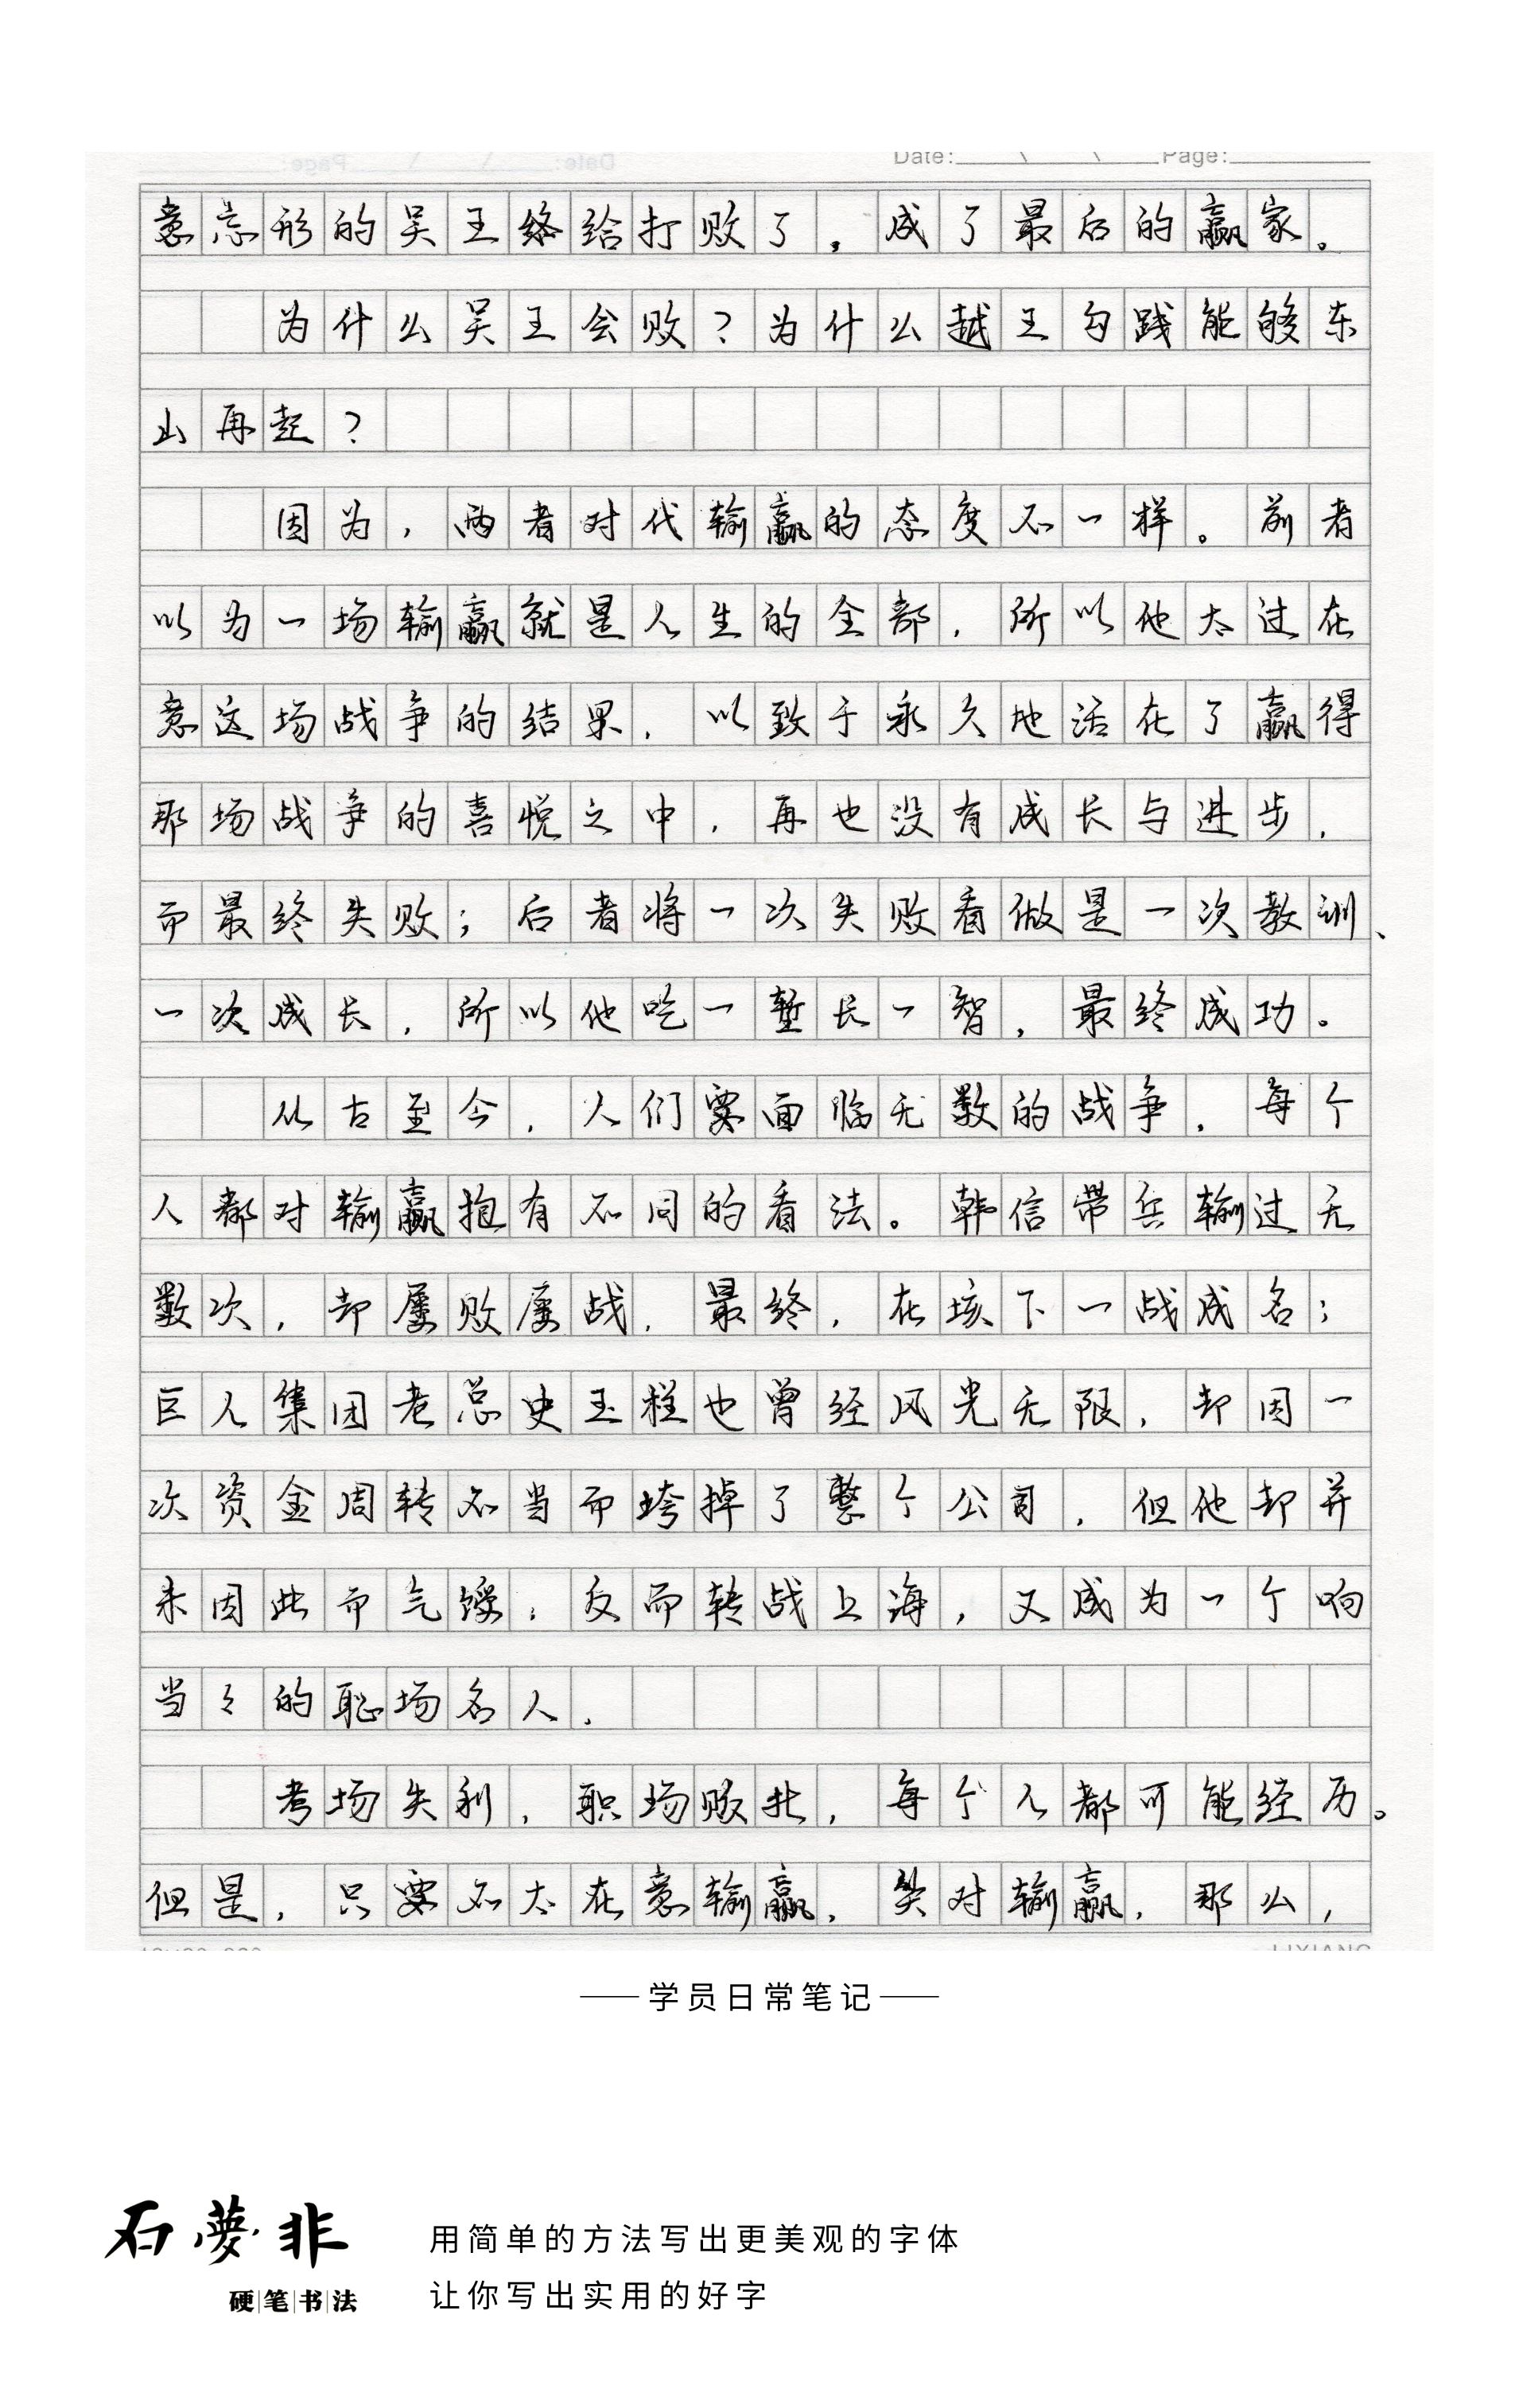 Date: \ \ Page:
意忘形的吴王终给打败了。成了最后的赢家。
为什么吴王会败?为什么越王勾践能够东
山再起?
因为,两者对代输赢的态度不一样。前者
以为一场输赢就是人生的全部,所以他太过在
意这场战争的结果,以致于永久地活在了赢得
那场战争的喜悦之中,再也没有成长与进步,
而最终失败;后者将一次失败看做是一次教训、
一次成长,所以他吃一堑长一智,最终成功。
从古至今,人们要面临无数的战争,每个
人都对输赢抱有不同的看法。韩信带兵输过无
数次,却屡败屡战,最终,在垓下一战成名;
巨人集团老总史玉柱也曾经风光无限,却因一
次资金周转不当而垮掉了整个公司,但他却并
未因此而气馁;反而转战上海,又成为一个响
当々的职场名人.
考场失利,职场败北,每个人都可能经历。
但是,只要不太在意输赢,笑对输赢,那么,
LIXIANG
学员日常笔记
石夢非
硬笔书法
用简单的方法写出更美观的字体
让你写出实用的好字